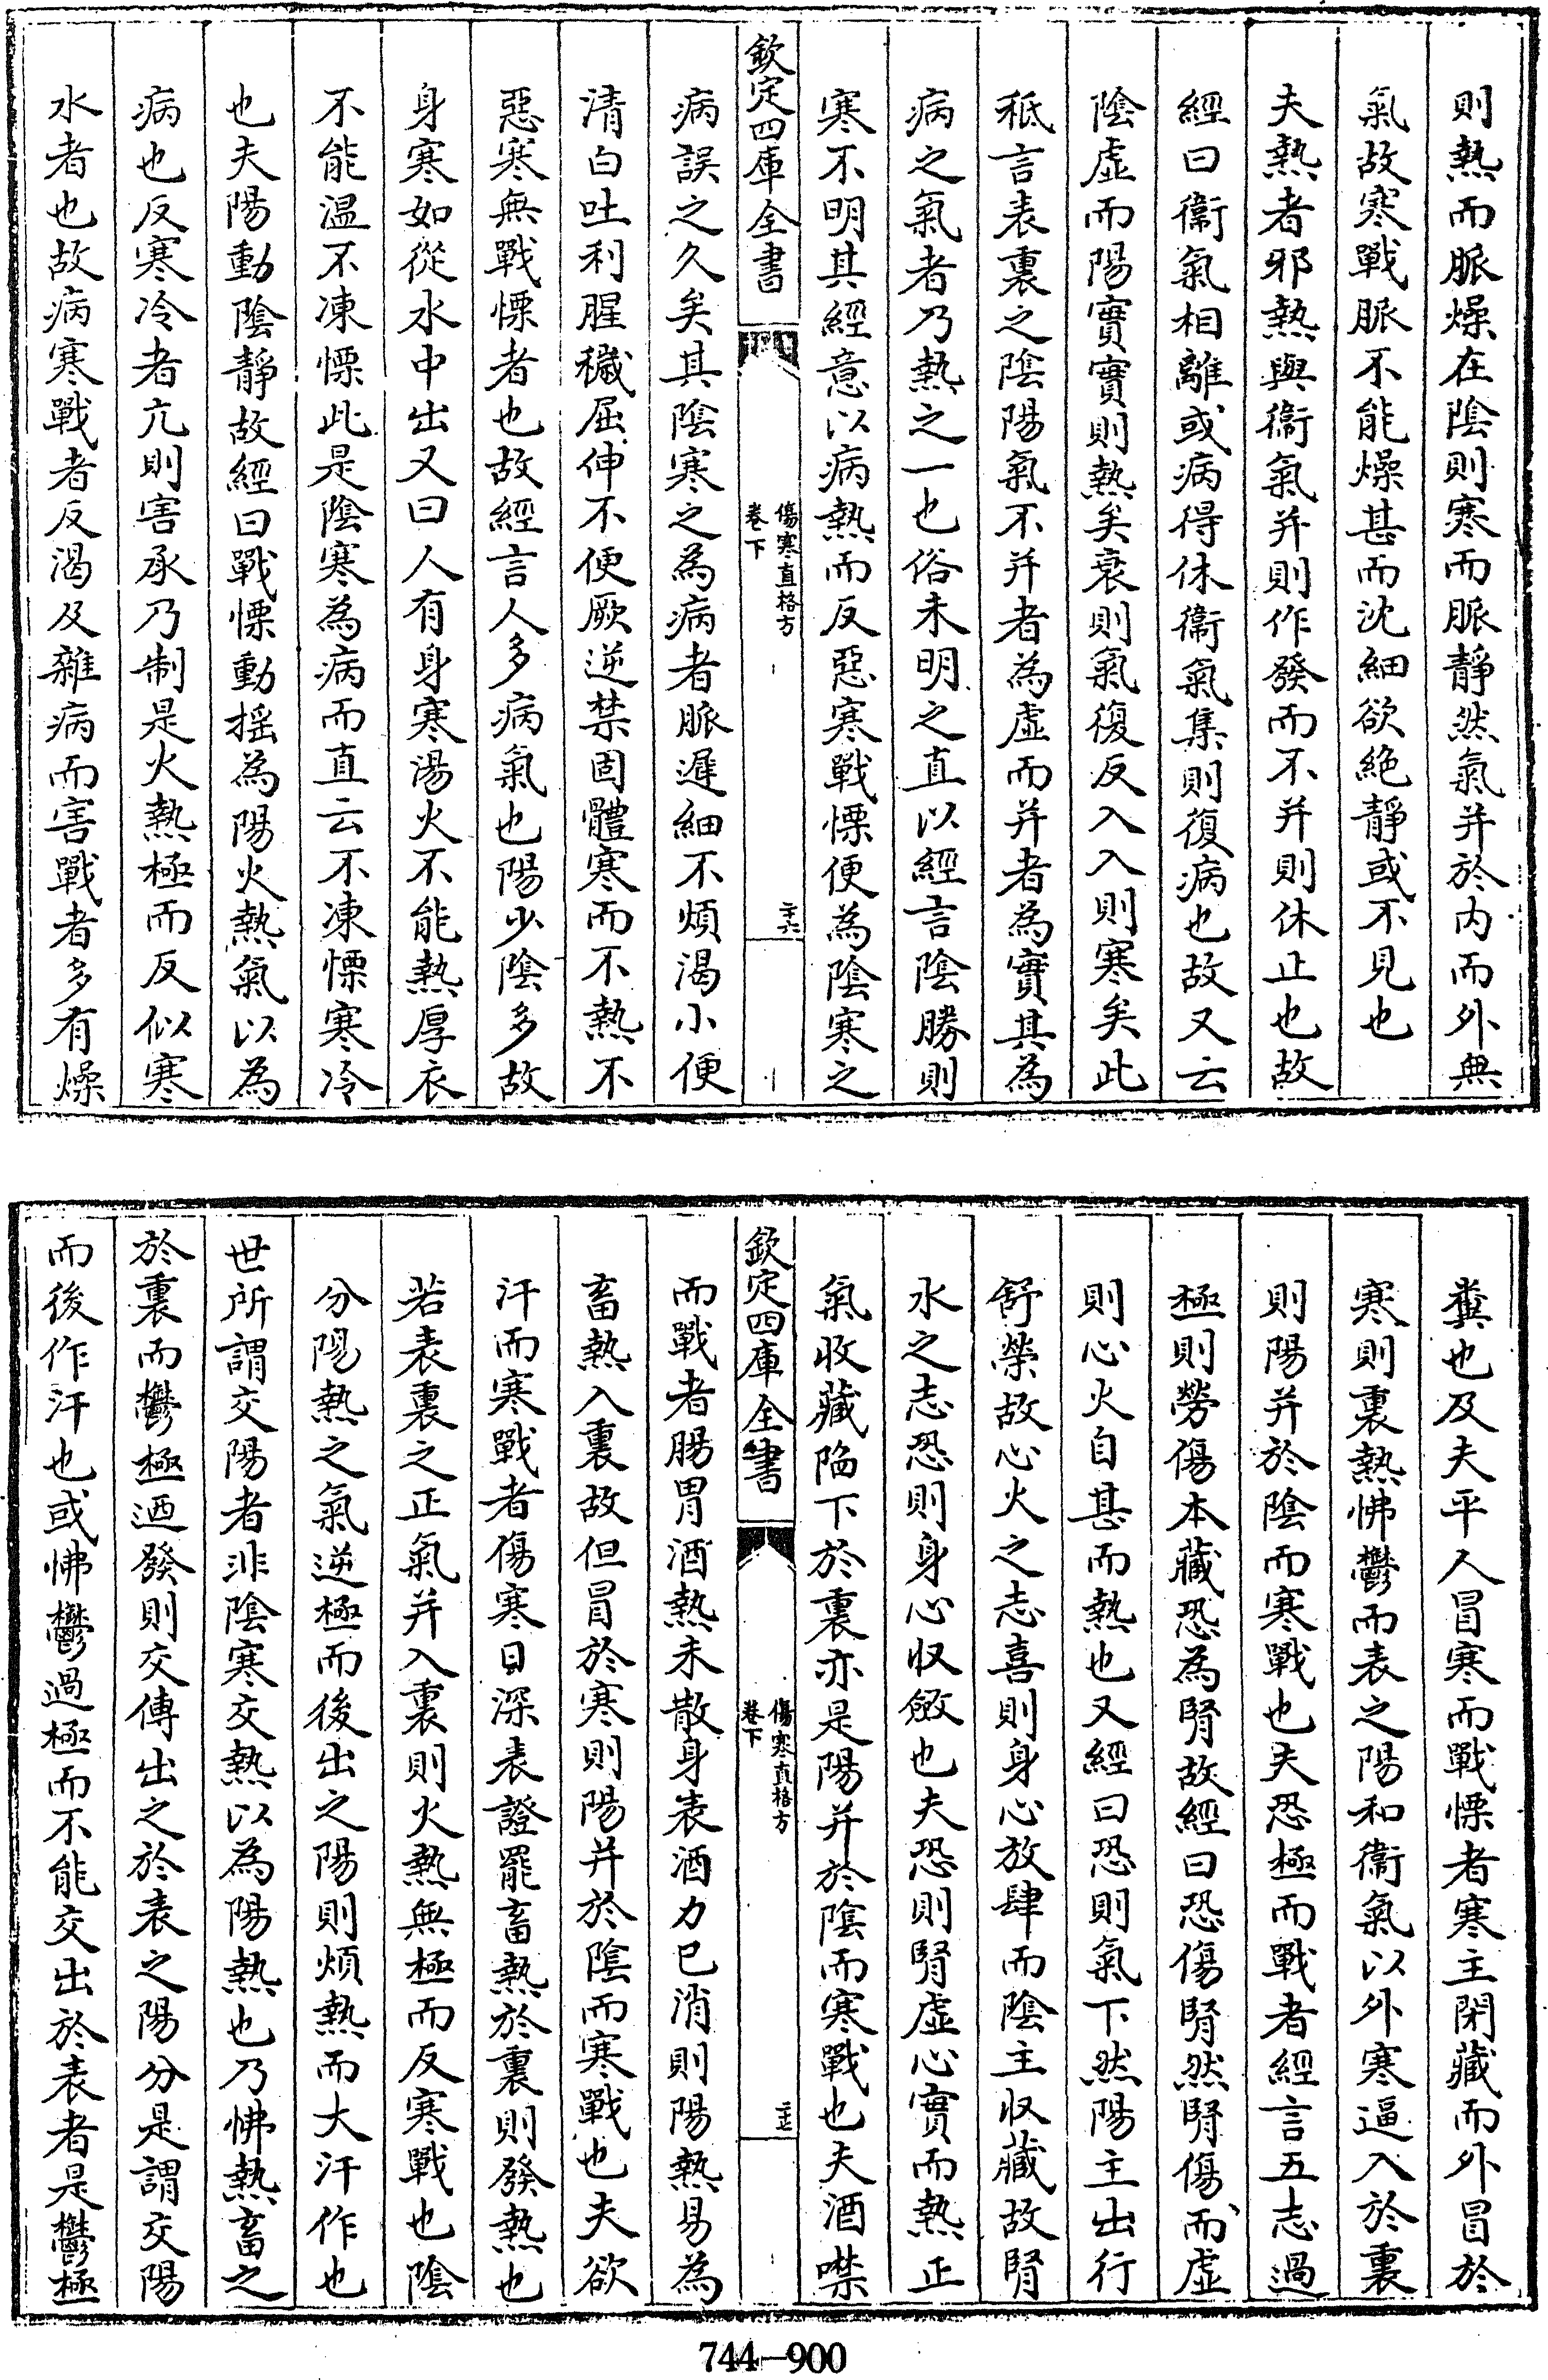 則熱而脈燥在陰則寒而脈靜然氣并於内而外無
氣故寒戰脈不能燥甚而沈細欲絶靜或不見也
夫熱者邪熱與衞氣并則作發而不并則休止也故
經曰衞氣相離或病得休衞氣集則復病也故又云
陰虛而陽實實則熱矣衰則氣復反入入則寒矣此
秪言表裏之陰陽氣不并者為虛而并者為實其為
病之氣者乃熱之一也俗未明之直以經言陰勝則
寒不明其經意以病熱而反惡寒戰慄便為陰寒之
欽定四庫全書
傷寒直格方
卷下
三六
病誤之久矣其陰寒之為病者脈遲細不煩渴小便
清白吐利腥穢屈伸不便厥逆禁固體寒而不熱不
惡寒無戰慄者也故經言人多病氣也陽少陰多故
身寒如從水中出又曰人有身寒湯火不能熱厚衣
不能温不凍慄此是陰寒為病而直云不凍慄寒冷
也夫陽動陰靜故經曰戰慄動揺為陽火熱氣以為
病也反寒冷者亢則害承乃制是火熱極而反似寒
水者也故病寒戰者反渴及雜病而害戰者多有燥
糞也及夫平人冒寒而戰慄者寒主閉藏而外冒於
寒則裏熱怫鬱而表之陽和衞氣以外寒逼入於裏
則陽并於陰而寒戰也夫恐極而戰者經言五志過
極則勞傷本藏恐為腎故經曰恐傷腎然腎傷而虛
則心火自甚而熱也又經曰恐則氣下然陽主出行
舒榮故心火之志喜則身心放肆而陰主収藏故腎
水之志恐則身心収斂也夫恐則腎虛心實而熱正
氣收藏陷下於裏亦是陽并於陰而寒戰也夫酒噤
欽定四庫全書
傷寒直格方
卷下
三七
而戰者腸胃酒熱未散身表酒力已消則陽熱易為
畜熱入裏故但冒於寒則陽并於陰而寒戰也夫欲
汗而寒戰者傷寒日深表證罷畜熱於裏則發熱也
若表裏之正氣并入裏則火熱無極而反寒戰也陰
分陽熱之氣逆極而後出之陽則煩熱而大汗作也
世所謂交陽者非陰寒交熱以為陽熱也乃怫熱畜之
於裏而鬱極迺發則交傳出之於表之陽分是謂交陽
而後作汗也或怫鬱過極而不能交出於表者是鬱極
744-900